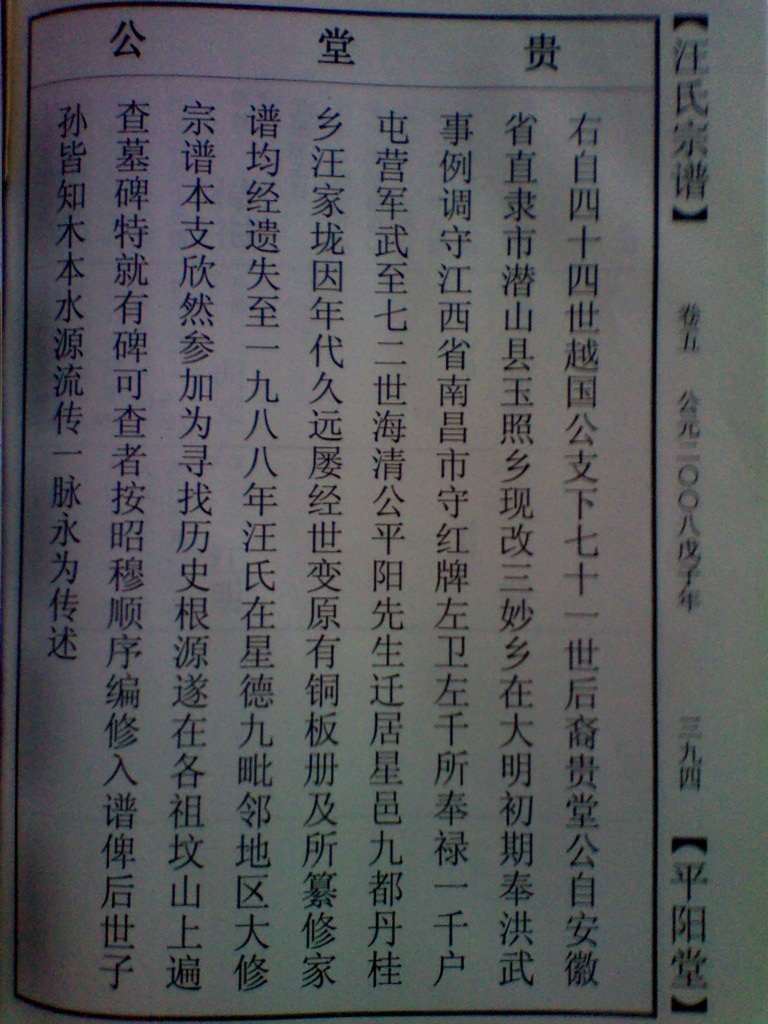 【汪氏宗谱】
卷五
公元二〇〇八戊子年
三九四
【平阳堂】
贵堂公
右自四十四世越国公支下七十一世后裔贵堂公自安徽
省直隶市潜山县玉照乡现改三妙乡在大明初期奉洪武
事例调守江西省南昌市守红牌左卫左千所奉禄一千户
屯营军武至七二世海清公平阳先生迁居星邑九都丹桂
乡汪家垅因年代久远屡经世变原有铜板册及所纂修家
谱均经遗失至一九八八年汪氏在星德九毗邻地区大修
宗谱本支欣然参加为寻找历史根源遂在各祖坟山上遍
查墓碑特就有碑可查者按昭穆顺序编修入谱俾后世子
孙皆知木本水源流传一脉永为传述